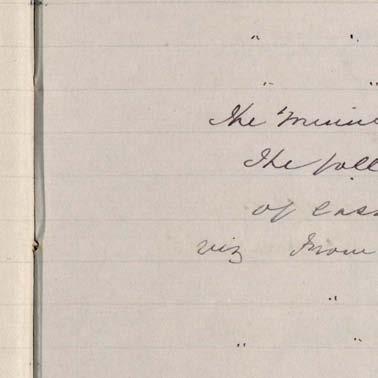 " "
" "
The Minu
The foll
of Cash
viz From
"
" "